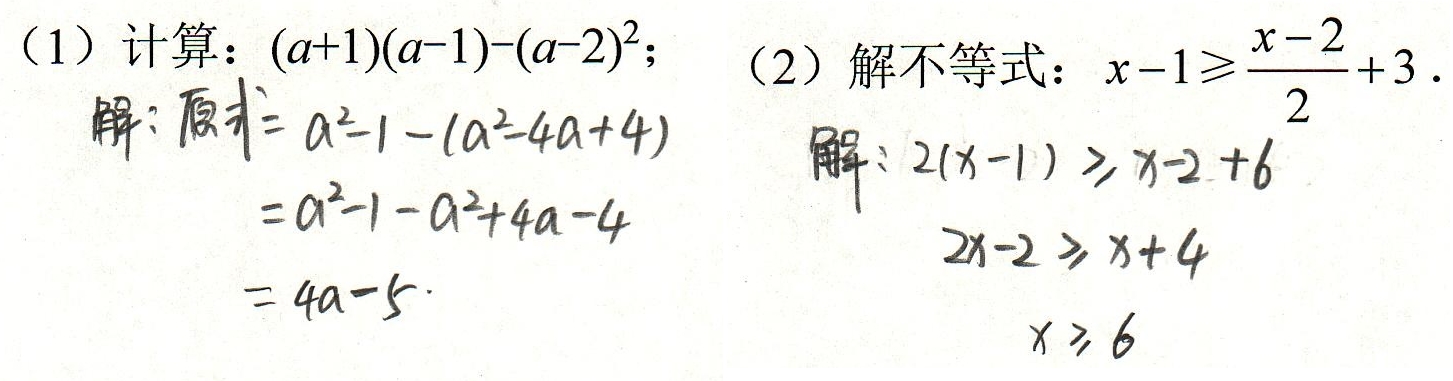 (1) 计算：(a+1)(a−1)−(a−2)²;
解：原式= a²-1-(a²-4a+4)
= a²-1-a²+4a-4
= 4a-5.
(2) 解不等式：x−1⩾\frac{x−2}{2}+3.
解：2(x-1) ⩾ x-2+6
2x-2 ⩾ x+4
x ⩾ 6